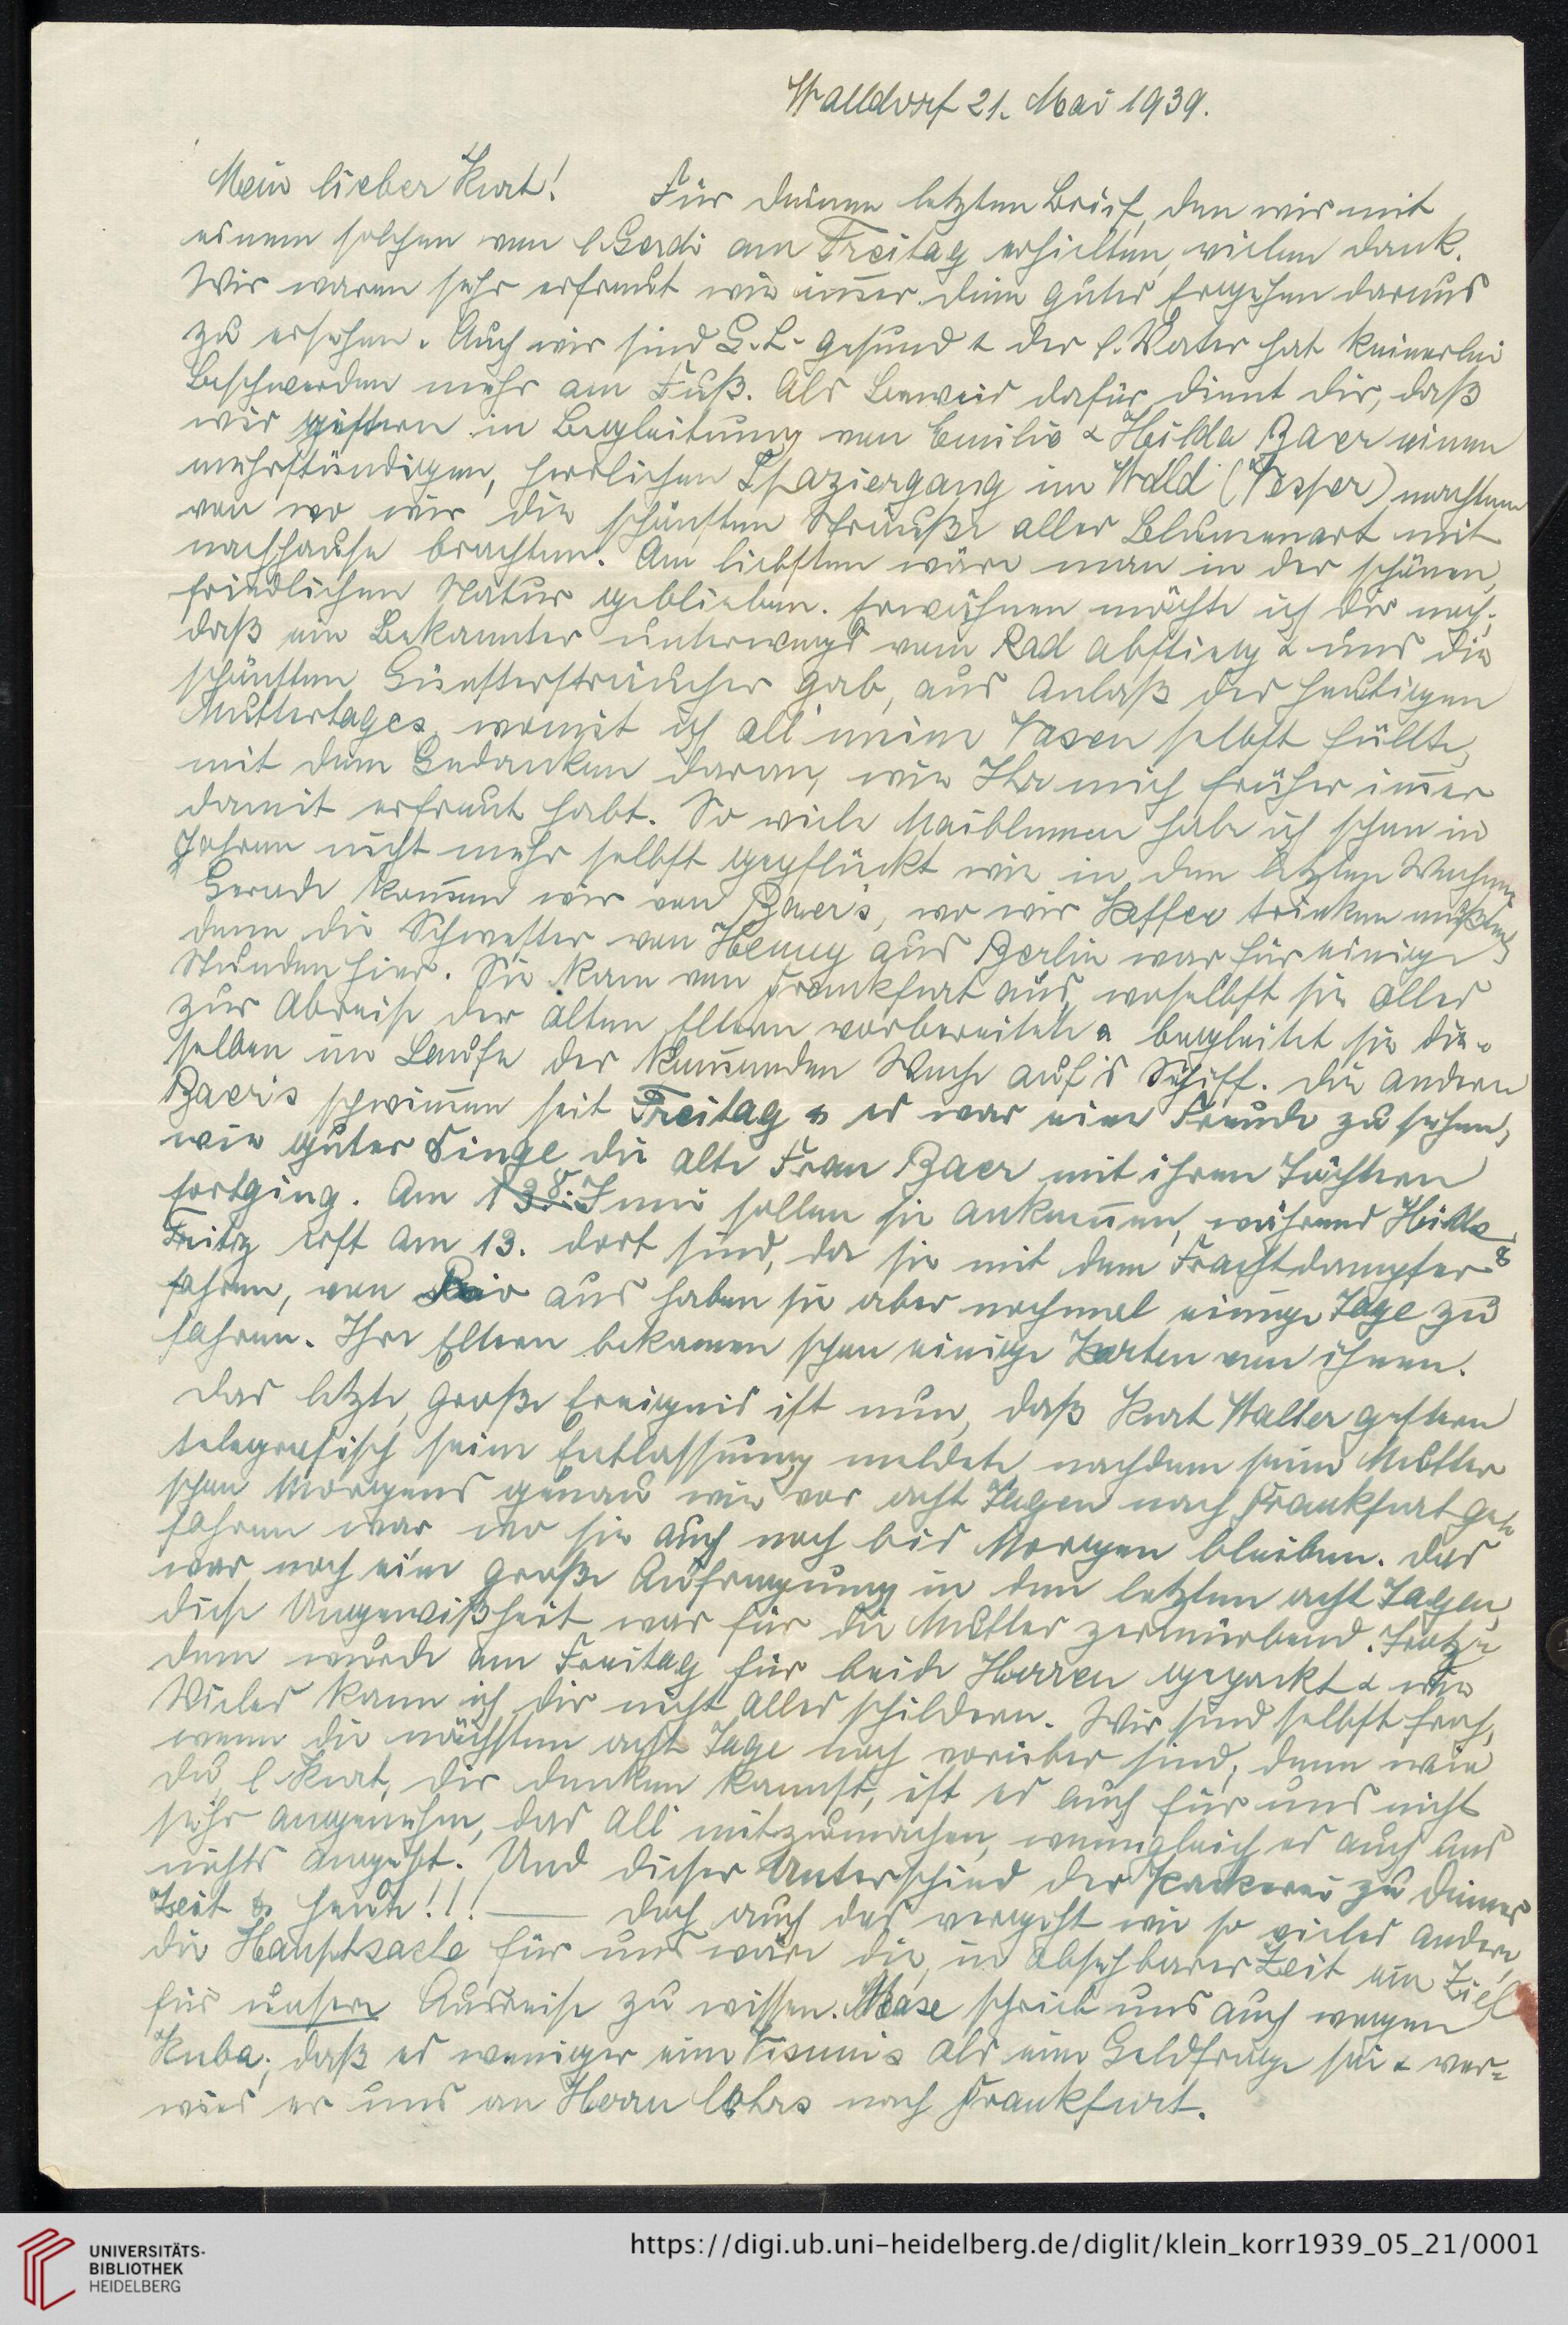 Walldorf 21. Mai 1939.
Mein lieber Kurt! Für deinen letzten Brief, den wir mit
einem solchen von l. Gerdi am Freitag erhielten, vielen dank.
Wir waren sehr erfreut wie im̅er dein gutes Ergehen daraus
zu ersehen. Auch wir sind G. L. gesund & der l. Vater hat keinerlei
Beschwerden mehr am Fuß. Als Beweis dafür dient dir, daß
wir gestern in Begleitung von Emilie & Hilda Baer einen
mehrstündigen, herrlichen Spaziergang im Wald (Vesper) machten
von wo wir die schönsten Sträuße aller Blumenart mit
nachhause brachten. Am liebsten wäre man in der schönen,
friedlichen Natur geblieben. Erwähnen möchte ich dir noch,
daß ein Bekannter unterwegs vom Rad abstieg & uns die
schönsten Ginstersträucher gab, aus Anlaß des heutigen
Muttertages, womit ich all' meine Vasen selbst füllte,
mit dem Gedanken daran, wie Ihr mich früher im̅er
damit erfreut habt. So viele Maiblumen habe ich schon in
Jahren nicht mehr selbst gepflückt wie in den letzten Wochen.
Gerade kom̅en wir von Baer's, wo wir Kaffee trinken mußten,
denn die Schwester von Henny aus Berlin war für einige
Stunden hier. Sie kam von Frankfurt aus, woselbst sie alles
zur Abreise der alten Eltern vorbereitete & begleitet sie die-
selben im Laufe der kom̅enden Woche auf's Schiff. Die andern
Baer's schwim̅en seit Freitag & es war eine Freude zu sehen,
wie guter Dinge die alte Frau Baer mit ihren Töchtern
fortging. Am 8. Juni sollen sie ankom̅en, während Hilde &
Fritz erst am 13. dort sind, da sie mit dem Frachtdampfer
fahren, von Rio aus haben sie aber nochmal einige Tage zu
fahren. Ihre Eltern bekamen schon einige Karten von ihnen.
Das letzte, große Ereignis ist nun, daß Kurt Walter gestern
telegrafisch seine Entlassung meldete nachdem seine Mutter
schon Morgens genau wie vor acht Tagen nach Frankfurt ge-
fahren war wo sie auch noch bis Morgen bleiben. Das
war noch eine große Aufregung in den letzten acht Tagen,
diese Ungewißheit war für die Mutter zermürbend. Trotz-
dem wurde am Freitag für beide Herren gepackt & wie
Vieles kann ich dir nicht alles schildern. Wir sind selbst froh,
wenn die nächsten acht Tage noch vorüber sind, denn wie
du, l. Kurt, dir denken kannst, ist es auch für uns nicht
sehr angenehm, das all' mitzumachen, wenngleich es auch uns
nichts angeht. Und dieser Unterschied der Packerei zu deiner
Zeit & heute!!! — Doch auch das vergeht wie so vieles andere,
die Hauptsache für uns wäre die, in absehbarer Zeit ein Ziel
für unsere Ausreise zu wissen. Mase schrieb uns auch wegen
Kuba, daß es weniger eine Visum's als eine Geldfrage sei & ver-
wies er uns an Herrn nach Frankfurt.
UNIVERSITÄTS-
BIBLIOTHEK
HEIDELBERG
https://digi.ub.uni-heidelberg.de/diglit/klein_korr1939_05_21/0001